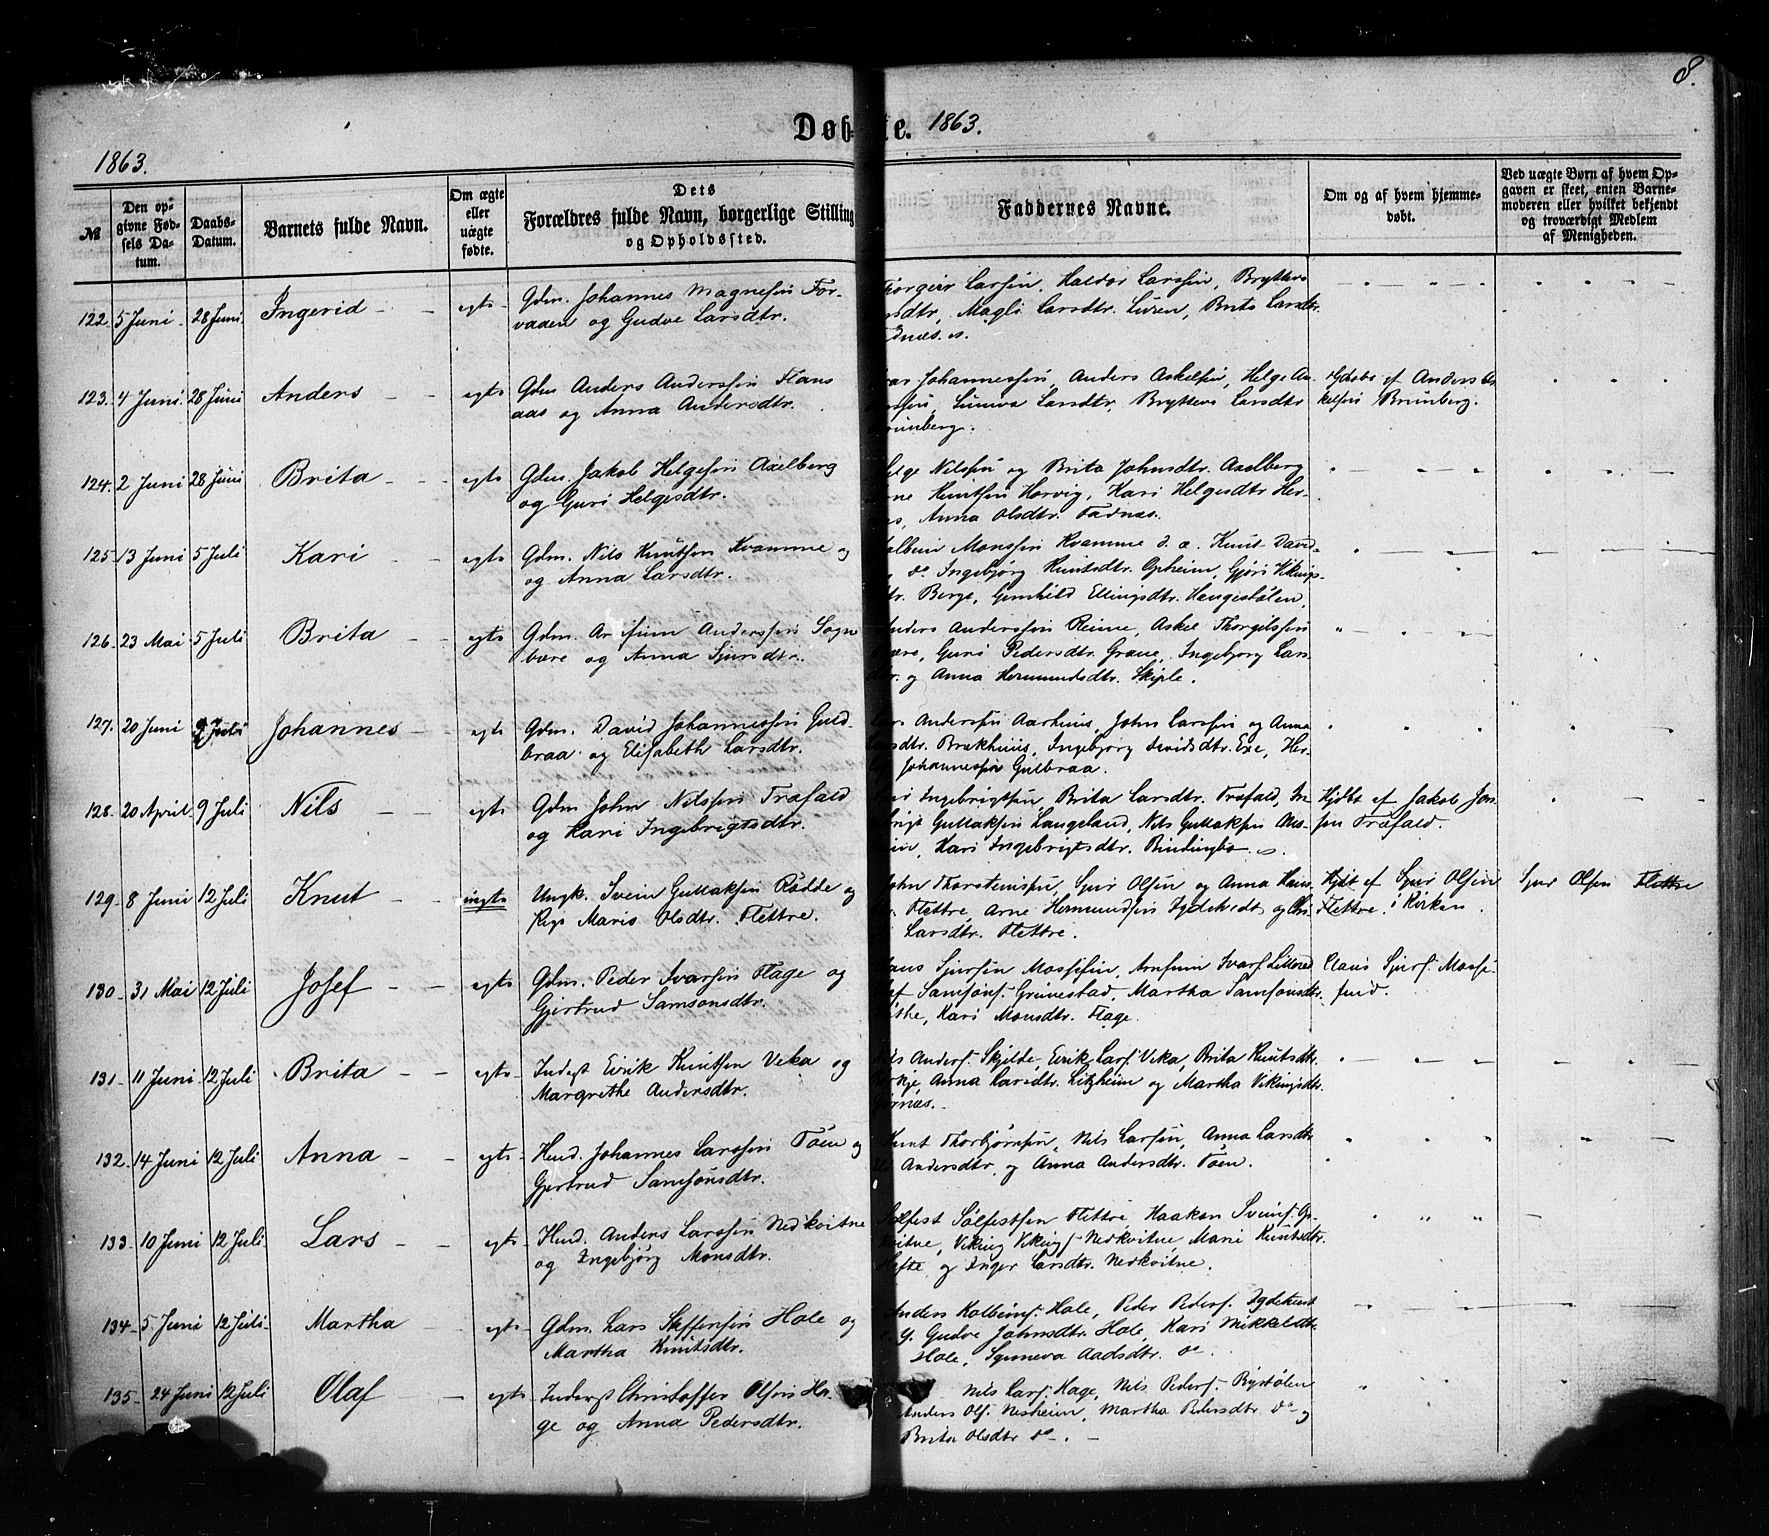 8.
Døb
te.
1863.
1863.
№
Den op-
givne Fød-
sels Da-
tum.
Daabs-
Datum.
Barnets fulde Navn.
Om ægte
eller
uægte
fødte.
Dets
Forældres fulde Navn, borgerlige Stilling
og Opholdssted.
Faddernes Navne.
Om og af hvem hjemme-
døbt.
Ved uægte Børn af hvem Op-
gaven er skeet, enten Barne-
moderen eller hvilket bekjendt
og troværdigt Medlem
af Menigheden.
122. 5 Juni 28 Juni Ingerid egte
Gdm. Johannes Magnesen
og Gudve Larsdtr.
Larsen, Haldor Larssen, Brytteva
sdtr, Magli Larsdtr. Brita Larsdtr.
dnæs.
123. 4 Juni 28 Juni Anders egte
Gdm Anders Anderssen Flaus
aas og Anna Andersdtr.
Johannessen, Anders Askelsen, Helge An-
ssen, Larsdtr, Brytteva Larsdtr
Brünberg.
Anders As-
kelsen Brünberg.
124. 2 Juni 28 Juni Brita egte
Gdm. Jakob Helgesen Axelberg
og Guri Helgesdtr.
elge Nilsen og Brita Johnsdtr. Axelberg
rne Knutsen Horvig, Kari Helgesdtr Her-
s, Anna Olsdtr. Fadnæs.
125 13 Juni 5 Juli Kari egte
Gdm. Nils Knutsen Kvamme og
og Anna Larsdtr.
olbein Monssen Kvamme d. æ. Knut David-
do Ingebjørg Knutsdtr. Opheim, Gjøri Vikings-
tr. Berge, Gunhild Ellingsdtr. Hængestølen,
126. 23 Mai 5 Juli Brita egte
Gdm. Anderssen Sogn
og Anna Sjursdtr.
nders Anderssen Reime, Askel Thorgilssen
Guri Pedersdtr. Græve, Ingebjørg Lars-
dtr. og Anna Hermundsdtr. Skiple.
127. 20 Juni 9 Juli Johannes egte
Gdm. David Johannessen Guld-
braa og Elisabeth Larsdtr.
Anderssen Aarhuus, John Larssen og Anna
rsdtr. Brækhuus, Ingebjørg Davidsdtr. Exe, Her-
Johannessen Gulbraa.
128. 20 April 9 Juli Nils egte
Gdm John Nilssen Træfald
og Kari Ingebrigtsdtr.
Ingebrigtsen, Brita Larsdtr. Træfald, In-
brigt Gullaksen Langeland, Nils Gullaksen
Kari Ingebrigtsdtr. Bindingbø.
Hjdbt af Jakob Jon-
sen Træfald.
129. 8 Juni 12 Juli Knut uegte
Ungk. Svein Gullaksen Rødde og
Pige Maris Olsdtr. Flettre.
John Thorsteinsen, Sjur Olsen og Anna Hans-
Flettre, Arne Hermundsen Dydekvedt og
Larsdtr. Flettre.
Hjdbt af Sjur Olsen
Flettre. i Kirken
Sjur Olsen Flettre
130. 31 Mai 12 Juli Josef egte
Gdm. Peder Ivarsen Flage og
Gjertrud Samsonsdtr.
Claus Sjursen Mossefin, Arnfinn Ivars. Litlered
Samsons. Grünestad, Martha Samsonsdtr.
the, Kari Monsdtr. Flage.
Claus Sjurs. Mosse-
find.
131. 11 Juni 12 Juli Brita egte
Inderst Eirik Knutsen Veka og
Margrethe Andersdtr.
Anders. Skjelde, Eirik Lars. Veka, Brita Knutsdtr.
Anna Larsdtr. Litzheim og Martha Vikingsdtr.
132. 14 Juni 12 Juli Anna egte
Husd. Johannes Larssen Tøen og
Gjertrud Samsonsdtr.
Knut Thorbjørnsen, Nils Larsen, Anna Larsdtr
Andersdtr. og Anna Andersdtr. Tøen.
133. 10 Juni 12 Juli Lars egte
Husd. Anders Larssen Nedkvitne
og Ingebjørg Monsdtr.
Sølfest Sølfestsen Flettre, Haakon Sveins.
vitne, Viking Vikings. Nedkvitne Mari Knutsdtr.
og Inger Larsdtr. Nedkvitne.
134. 5 Juni 12 Juli Martha egte
Gdm. Lars Steffensen Hole og
Martha Knutsdtr.
Anders Kolbeins. Hole, Peder Peders. Dydekvedt
Gudve Johnsdtr. Hole, Kari Mikkelsdtr.
Hole, Synneva Aadsdtr. do
135. 24 Juni 12 Juli Olaf egte
Inderst Christoffer Olsen Ha-
ge og Anna Pedersdtr.
Nils Lars. Hage, Nils Peders. Rystølen
Anders Ols. Nesheim, Martha Pedersdtr do og
Brita Olsdtr do.